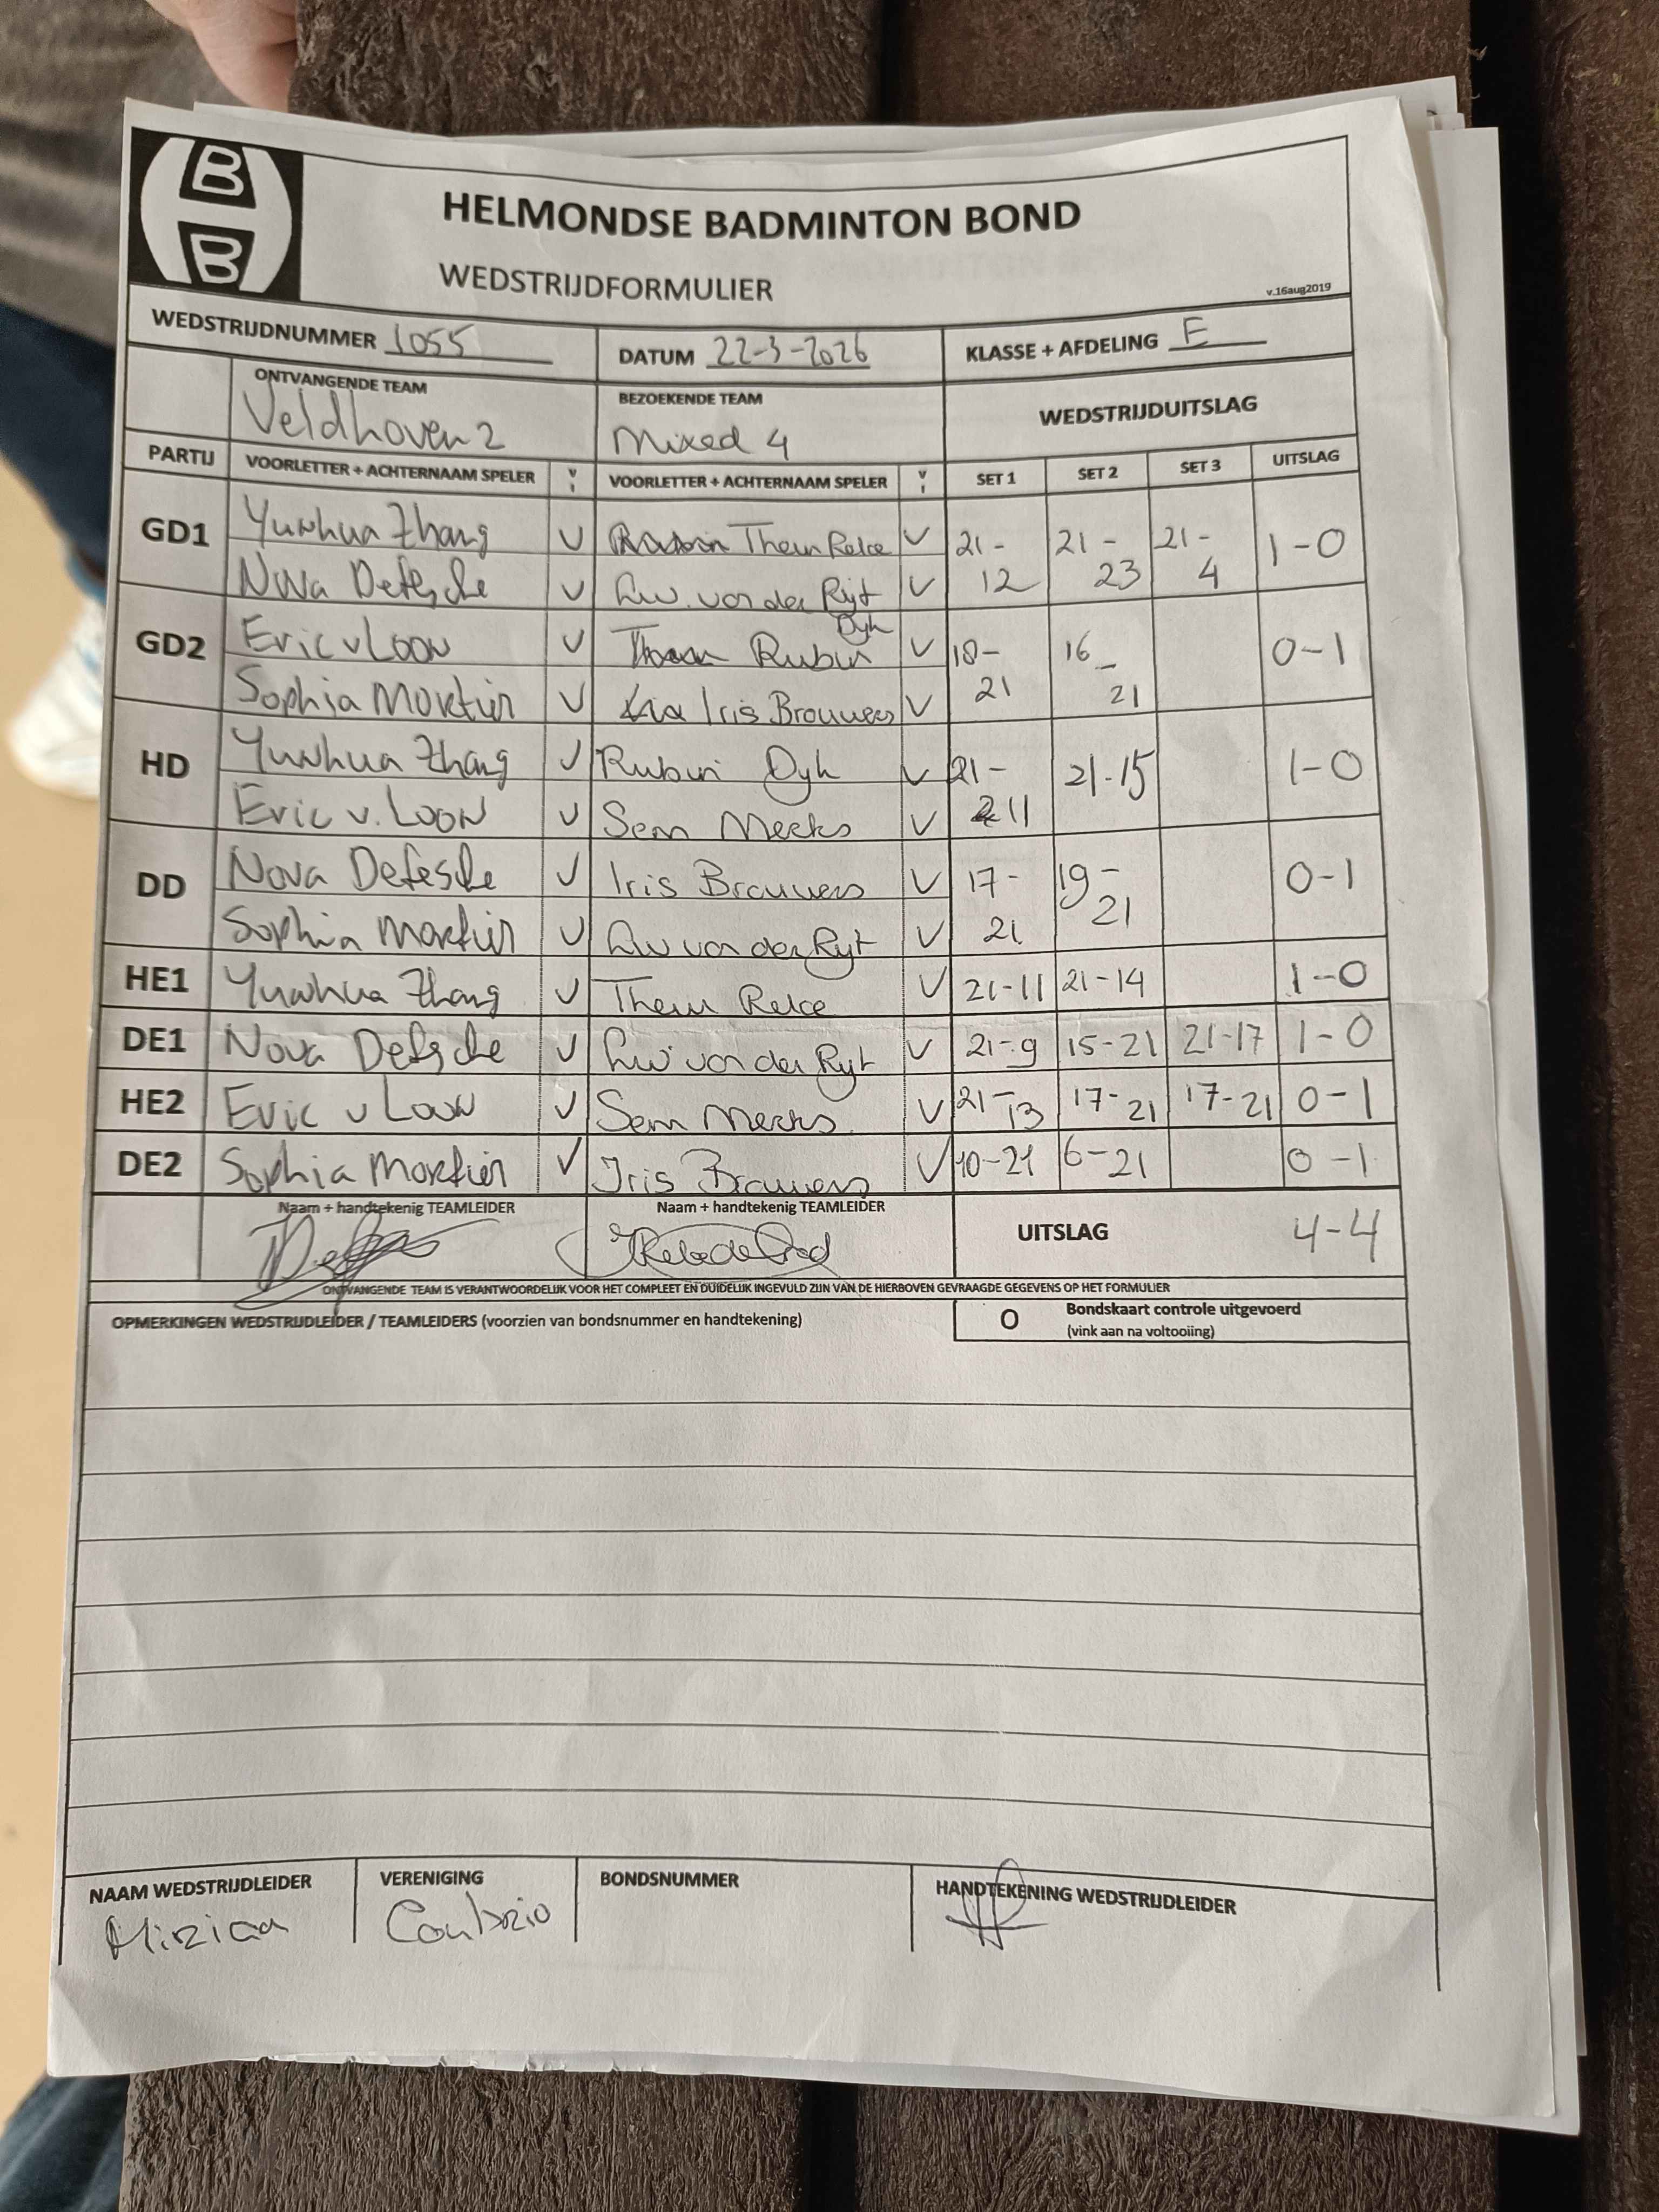 B
B
HELMONDSE BADMINTON BOND
WEDSTRIJDFORMULIER
v.16aug2019
WEDSTRIJDNUMMER 1055 DATUM 22-3-2026 KLASSE + AFDELING E
ONTVANGENDE TEAM BEZOEKENDE TEAM WEDSTRIJDUITSLAG
Veldhoven 2 Mixed 4
PARTIJ VOORLETTER + ACHTERNAAM SPELER V I VOORLETTER + ACHTERNAAM SPELER V I SET 1 SET 2 SET 3 UITSLAG
GD1 Yunhua Zhang V Relce V 21-12 21-23 21-4 1-0
Nova Defesche V van der Rijt V
GD2 Eric v Loon V Rubin Dyk V 18-21 16-21 0-1
Sophia Mortier V Iris Brouwers V
HD Yunhua Zhang V Rubin Dyk V 21-11 21-15 1-0
Eric v. Loon V Sem V
DD Nova Defesche V Iris Brouwers V 17-21 19-21 0-1
Sophia Mortier V van der Rijt V
HE1 Yunhua Zhang V Relce V 21-11 21-14 1-0
DE1 Nova Defesche V van der Rijt V 21-9 15-21 21-17 1-0
HE2 Eric v Loon V Sem V 21-13 17-21 17-21 0-1
DE2 Sophia Mortier V Iris Brouwers V 10-21 6-21 0-1
Naam + handtekenig TEAMLEIDER Naam + handtekenig TEAMLEIDER UITSLAG 4-4
ONTVANGENDE TEAM IS VERANTWOORDELIJK VOOR HET COMPLEET EN DUIDELIJK INGEVULD ZIJN VAN DE HIERBOVEN GEVRAAGDE GEGEVENS OP HET FORMULIER
OPMERKINGEN WEDSTRIJDLEIDER / TEAMLEIDERS (voorzien van bondsnummer en handtekening) O Bondskaart controle uitgevoerd
(vink aan na voltooiing)
NAAM WEDSTRIJDLEIDER VERENIGING BONDSNUMMER HANDTEKENING WEDSTRIJDLEIDER